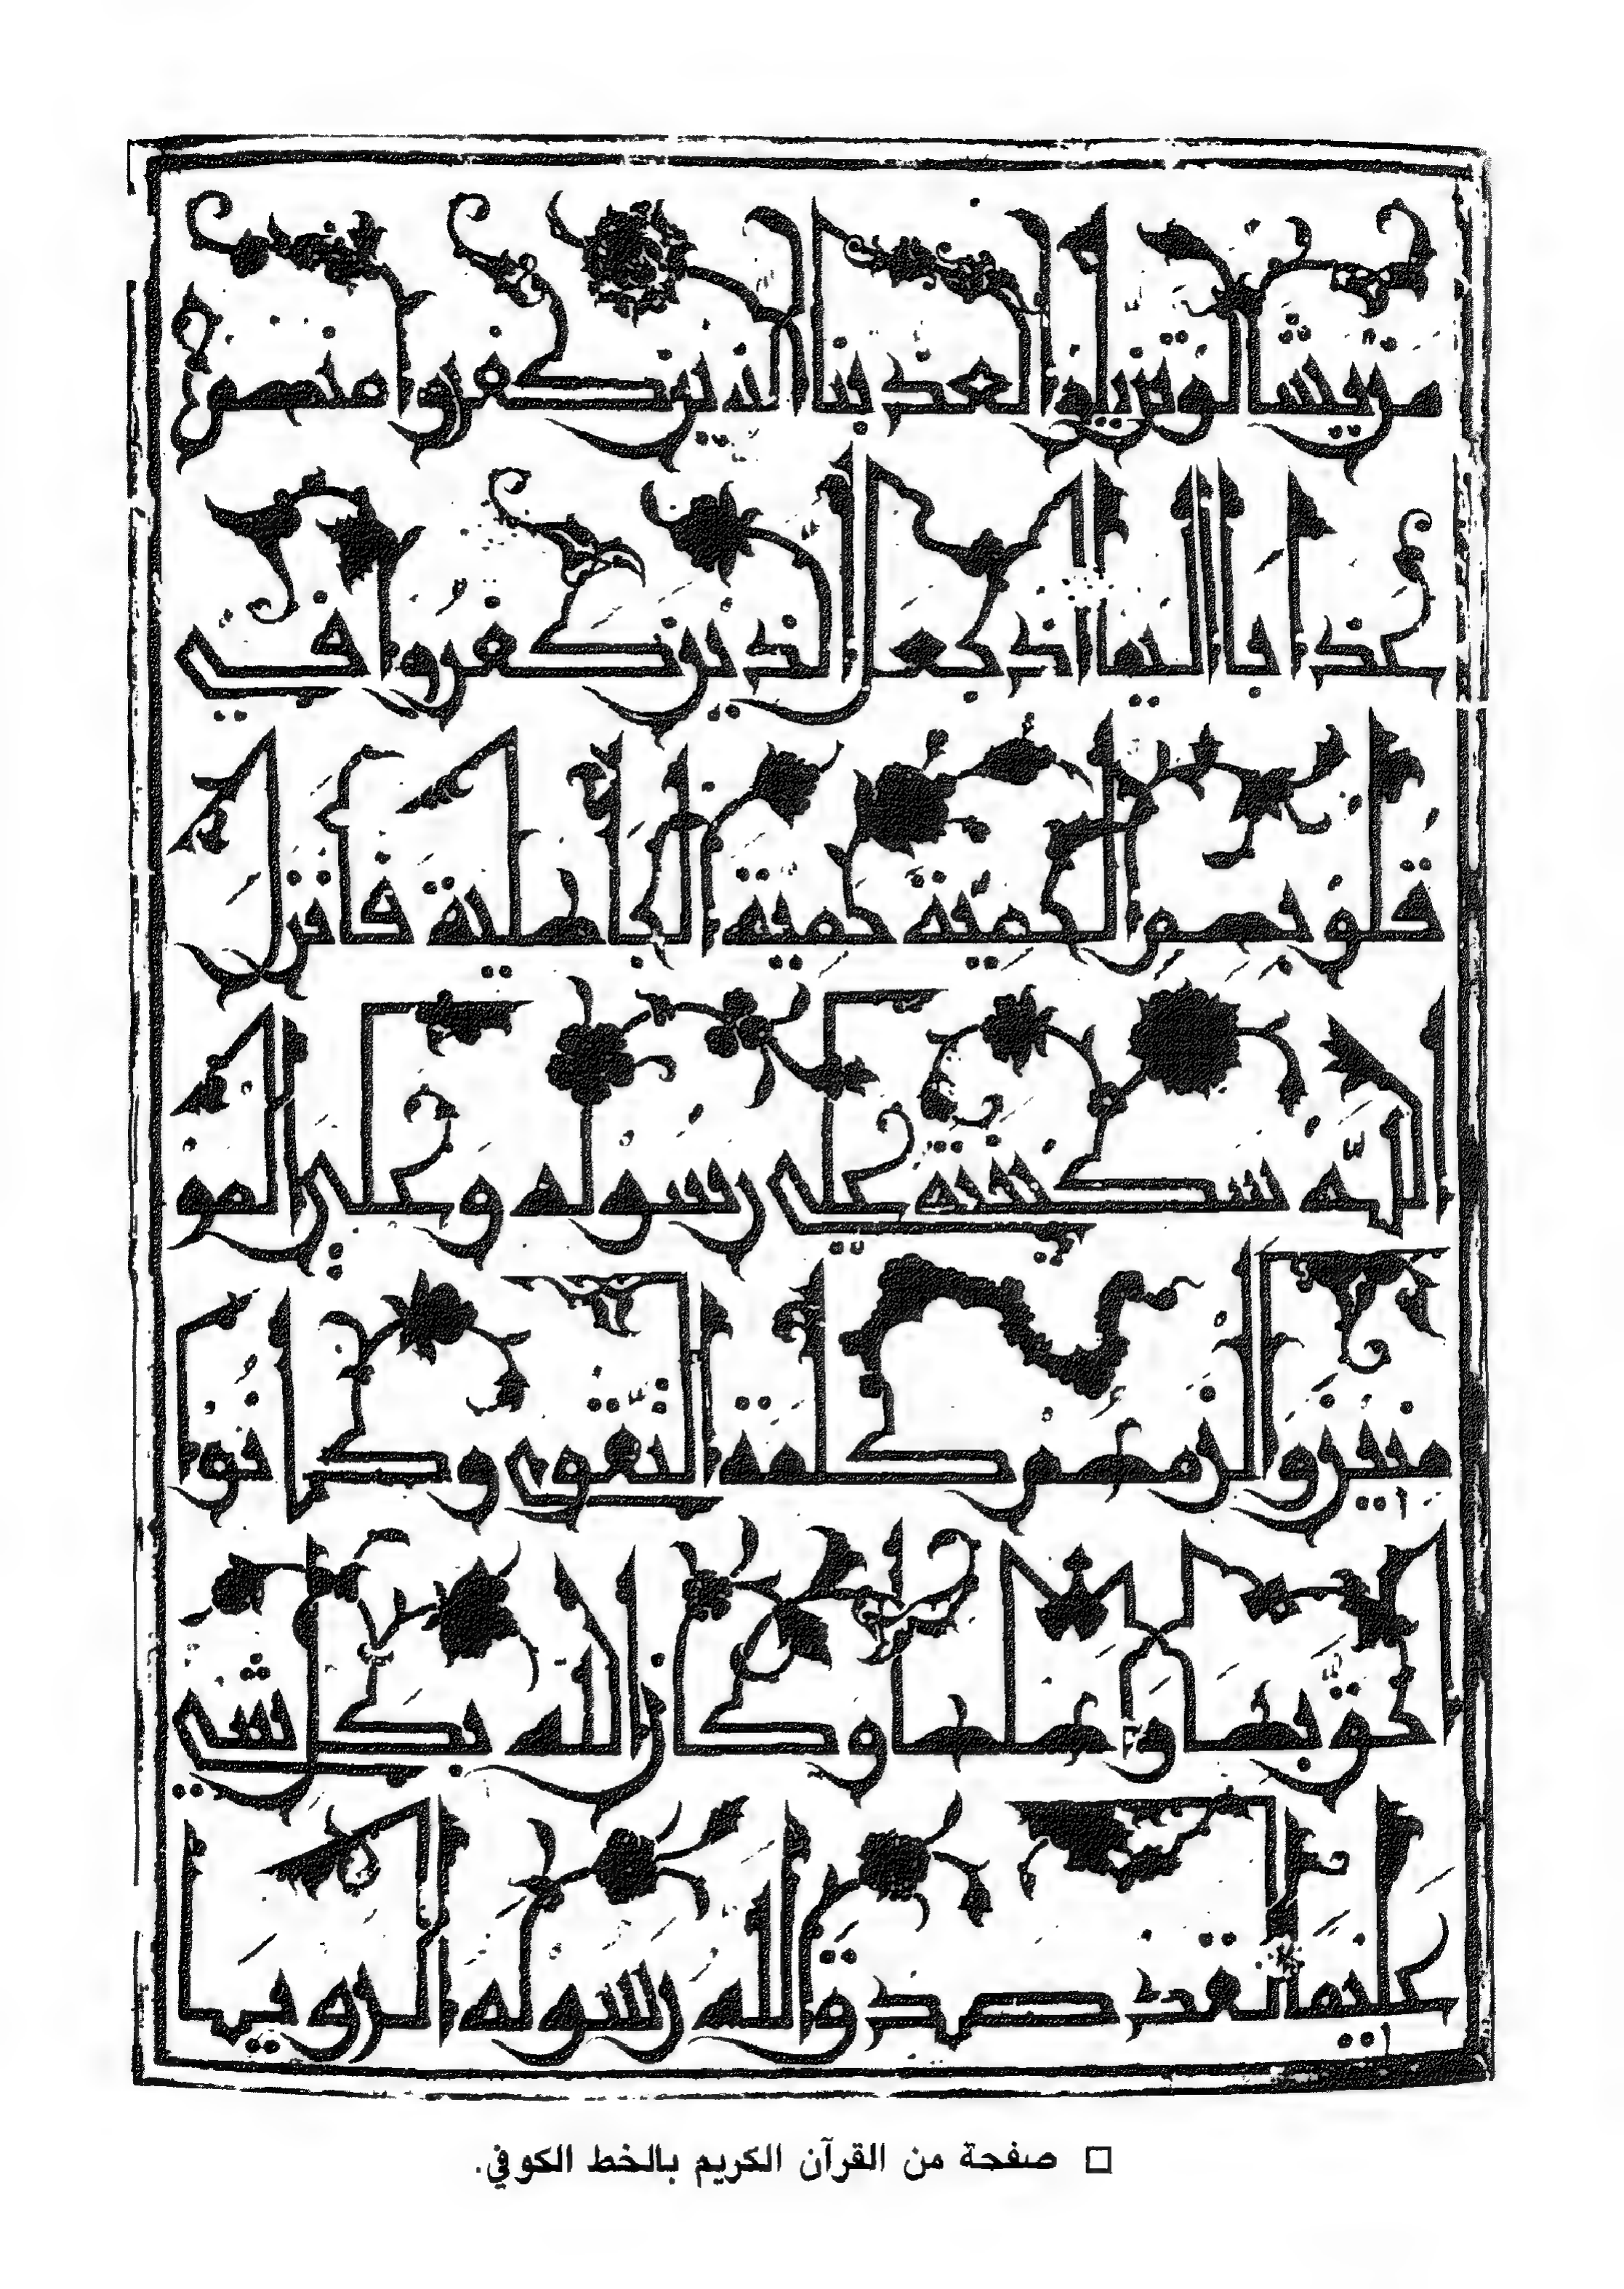 من يشا لو تزيلوا لعذبنا الذين كفروا منهم
عذابا اليما اذ جعل الذين كفروا في
قلوبهم الحمية حمية الجاهلية فانزل
الله سكينته على رسوله وعلى المو
منين والزمهم كلمة التقوى وكانوا
احق بها واهلها وكان الله بكل شي
عليما لقد صدق الله رسوله الرويا
□ صفحة من القرآن الكريم بالخط الكوفي.